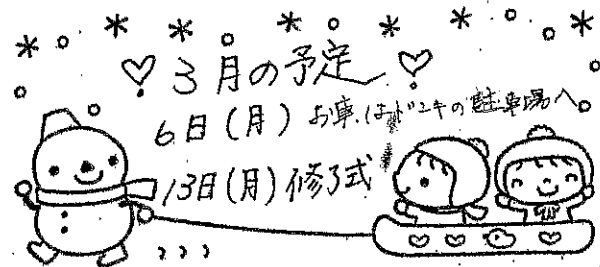 3月の予定
6日(月) お車はドンキの駐車場へ
13日(月) 修了式